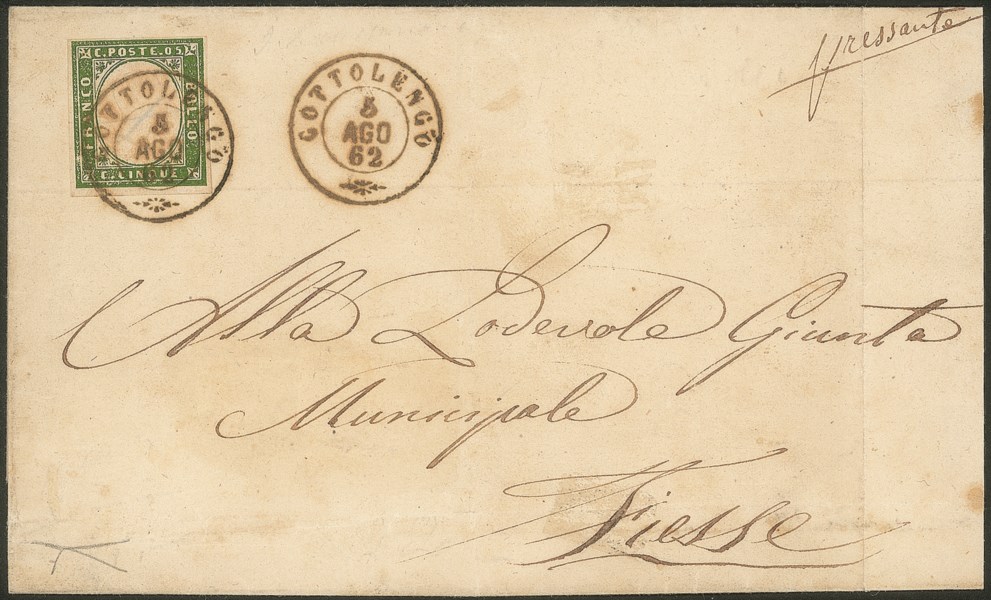 C. POSTE. 05
FRANCO
BOLLO
C. CINQUE
COTTOLENGO
5
AGO
62
COTTOLENGO
5
AGO
62
pressante
Alla Lodevole Giunta
Municipale
Fiesse